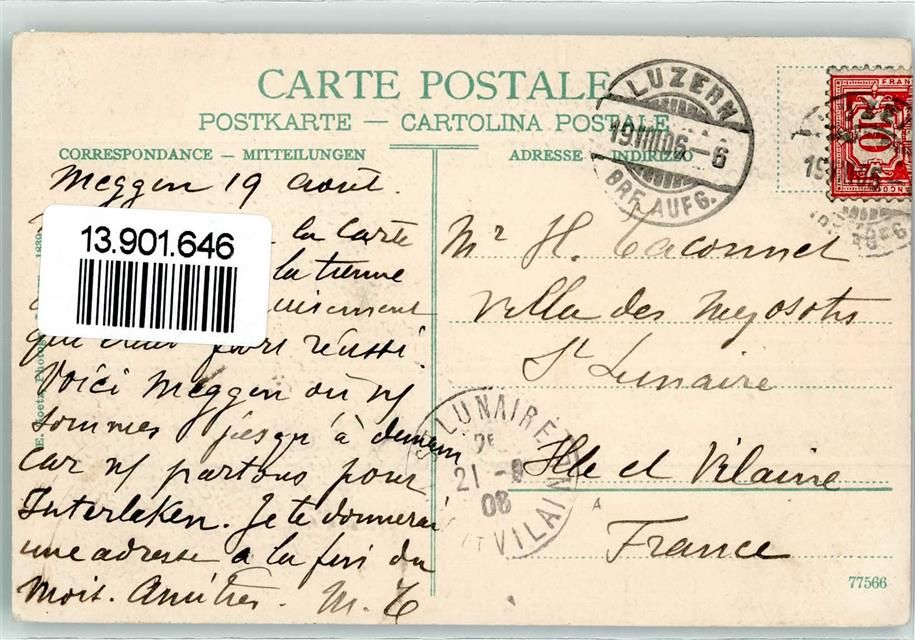 CARTE POSTALE
POSTKARTE — CARTOLINA POSTALE
CORRESPONDANCE – MITTEILUNGEN
ADRESSE – INDIRIZZO
LUZERN
19.VIII.06–6
BRF. AUFG.
FRAN
10
Meggen 19 août.
la carte
13.901.646
la tienne
réussi
Voici Meggen où ns
sommes jusqu'à demain
car ns partons pour
Interlaken. Je te donnerai
une adresse a la fin du
mois. Amitiés. M. T
Mr H. Taconnet
Villa des Myosotis
St Lunaire
Ille et Vilaine
France
LUNAIRE
21 -8
06
VILAINE
77566